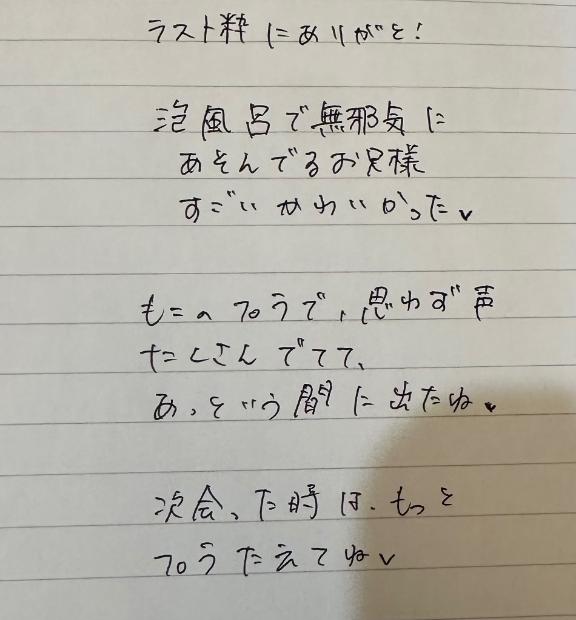 ラスト枠にありがと!
泡風呂で無邪気に
あそんでるお兄様
すごいかわいかった
もこのプロうで、思わず声
たくさんでてて、
あっという間に出たね
次会った時は、もっと
うたえてね